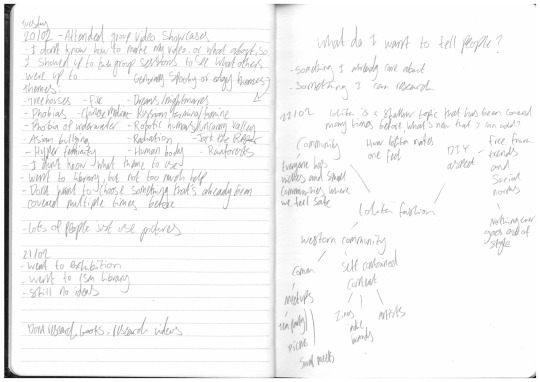 Tuesday
20/02 - Attended group video showcases
- I don't know how to make my video, or what about, so
I showed up to two group sessions to see what others
were up to
Generally spooky or edgy themes
themes:
- treehouses - Fire - Dreams/nightmares
- Phobias - Russian famine
- Phobia of underwater - Robotic humans/uncanny valley
- Asian bullying - Radiation - Jack the Ripper
- Hyper femininity - Human body - Rainforests
- I don't know what theme to use
- Went to library, but not too much help
- Don't want to choose something that's already been
covered multiple times before
- Lots of people just use pictures
21/02
- Went to exhibition
- Went to library
- Still no ideas
research, books, research videos
What do I want to tell people?
- something I already care about
- Something I can research
21/02 Lolita is a topic that has been covered
many times before, what's new that I can add?
Community
How lolita makes
one feel
DIY
aspect
Free from
trends
and
Social
norms
and small
communities where
we feel safe
Lolita fashion
Nothing ever
goes out of
style
western community
self contained
content
meetups
tea party
picnic
Zines
indie
brands
artists
Small meets